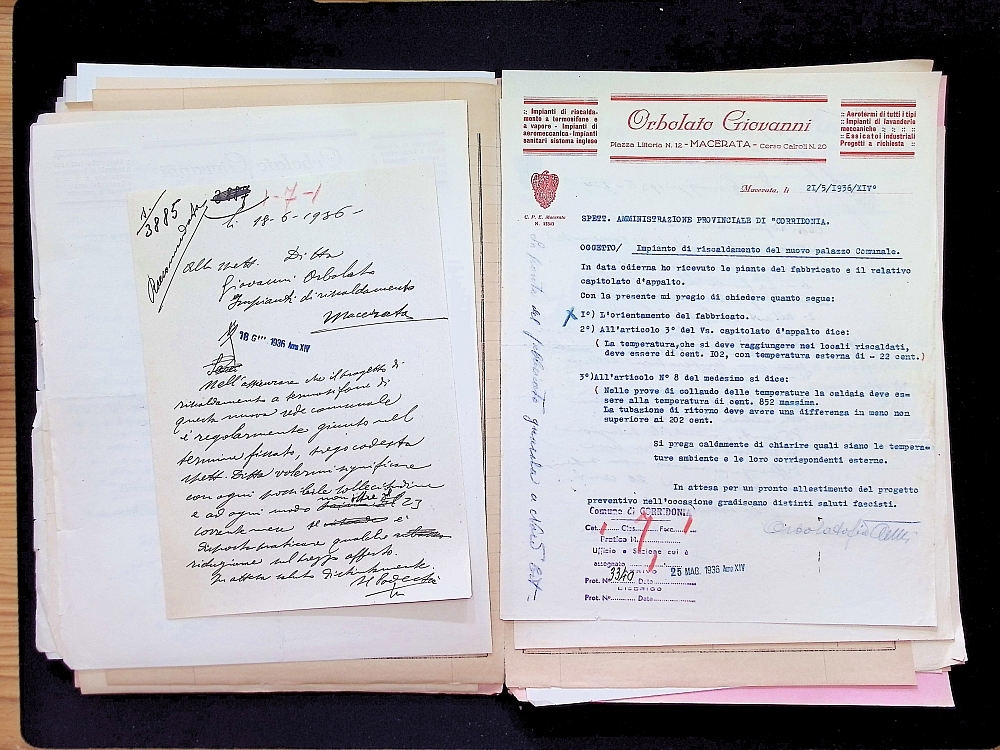 3885
Raccomandata
1-7-1
lì 18-6-1936-
Alla Spett. Ditta
Giovanni Orbolato
Impianti di riscaldamento
Macerata
18 G 1936 Anno XIV
Nell'assicurare che il progetto di
riscaldamento a termosifone di
questa nuova sede comunale
è regolarmente giunto nel
termine fissato, prego codesta
Spett. Ditta volermi significare
con ogni possibile sollecitudine
e ad ogni modo non oltre il 23
corrente mese se è
disposta praticare qualche
riduzione sul prezzo offerto.
In attesa saluti distintamente.
Il Podestà
:: Impianti di riscalda-
mento a termosifone e
a vapore - Impianti di
aeromeccanica-Impianti
sanitari sistema inglese
Orbolato Giovanni
Piazza Littoria N. 12 - MACERATA - Corso Cairoli N. 20
:: Aerotermi di tutti i tipi
:: Impianti di lavanderie
meccaniche :: :: :: ::
:: Essicatoi industriali
Progetti a richiesta ::
C. P. E. Macerata
Macerata, li 21/5/1936/XIV°
SPETT. AMMINISTRAZIONE PROVINCIALE DI "CORRIDONIA.
OGGETTO/ Impianto di riscaldamento del nuovo palazzo Comunale.
In data odierna ho ricevuto le piante del fabbricato e il relativo
capitolato d'appalto.
Con la presente mi pregio di chiedere quanto segue:
I°) L'orientamento del fabbricato.
2°) All'articolo 3° del Vs. capitolato d'appalto dice:
( La temperatura,che si deve raggiungere nei locali riscaldati,
deve essere di cent. IO2, con temperatura esterna di - 22 cent.)
3°)All'articolo N° 8 del medesimo si dice:
( Nelle prove di collaudo delle temperature la caldaia deve es=
sere alla temperatura di cent. 852 massima.
La tubazione di ritorno deve avere una differenza in meno non
superiore ai 202 cent.
Si prega caldamente di chiarire quali siano le tempera=
ture ambiente e le loro corrispondenti esterne.
In attesa per un pronto allestimento del progetto
preventivo nell'occasione gradiscano distinti saluti fascisti.
La fronte del fabbricato guarda a Nord Est-
Comune di CORRIDONIA
Cat. 1 Clas. 7 Fasc. 1
Pratica N.
Ufficio e Sezione cui è
assegnato
Prot. N° 3340 Data 25 MAG. 1936 Anno XIV
Prot. N° Data